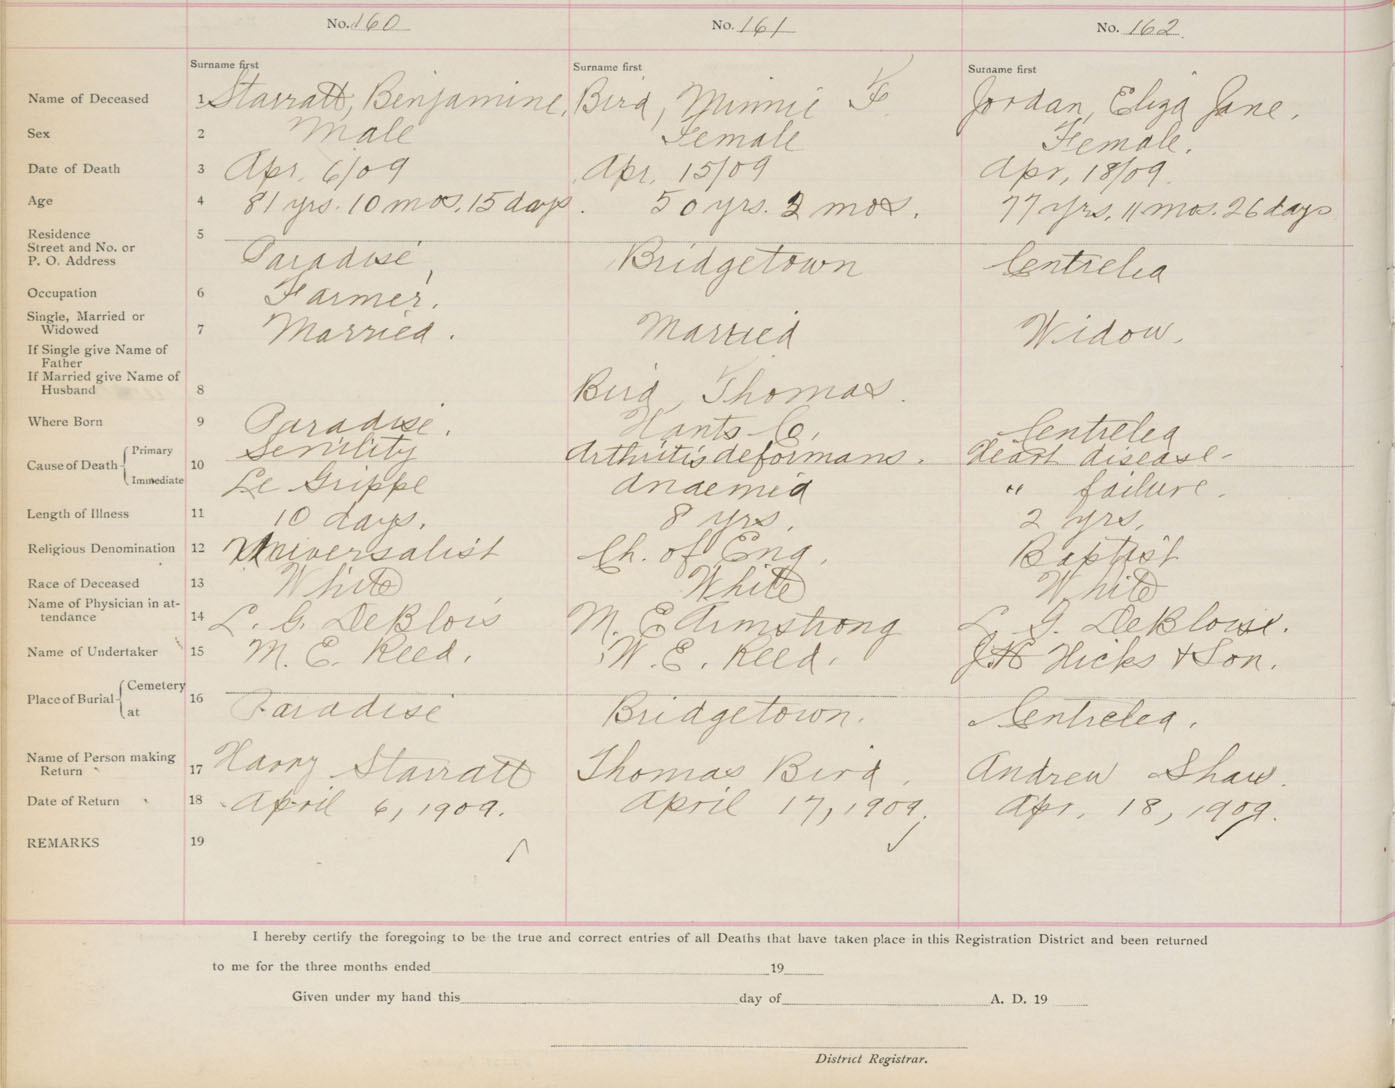 No. 160 No. 161 No. 162
Surname first Surname first Surname first
Name of Deceased 1 Starratt, Benjamine, Bird, Minnie F. Jordan, Eliza Jane.
Sex 2 Male Female Female.
Date of Death 3 Apr. 6/09 Apr. 15/09 Apr, 18/09.
Age 4 81 yrs. 10 mos. 15 days. 50 yrs. 2 mos. 77 yrs. 11 mos. 26 days
Residence 5
Street and No. or
P. O. Address Paradise, Bridgetown Centrelea
Occupation 6 Farmer.
Single, Married or
Widowed 7 Married. Married Widow.
If Single give Name of
Father
If Married give Name of
Husband 8 Bird, Thomas.
Where Born 9 Paradise. Hants Co. Centrelea
Cause of Death 10 Primary Senility Arthritis deformans. Heart disease-
Immediate Le Grippe Anaemia " failure.
Length of Illness 11 10 days. 8 yrs. 2 yrs.
Religious Denomination 12 Universalist Ch. of Eng. Baptist
Race of Deceased 13 White White White
Name of Physician in at-
tendance 14 L. G. DeBlois M. E Armstrong L. G. DeBloise.
Name of Undertaker 15 M. E. Reed. W. E. Reed. J H Hicks & Son.
Place of Burial 16 Cemetery
at Paradise Bridgetown. Centrelea.
Name of Person making
Return 17 Harry Starratt Thomas Bird. Andrew Shaw.
Date of Return 18 April 6, 1909. April 17, 1909. Apr. 18, 1909.
REMARKS 19
I hereby certify the foregoing to be the true and correct entries of all Deaths that have taken place in this Registration District and been returned
to me for the three months ended 19
Given under my hand this day of A. D. 19
District Registrar.